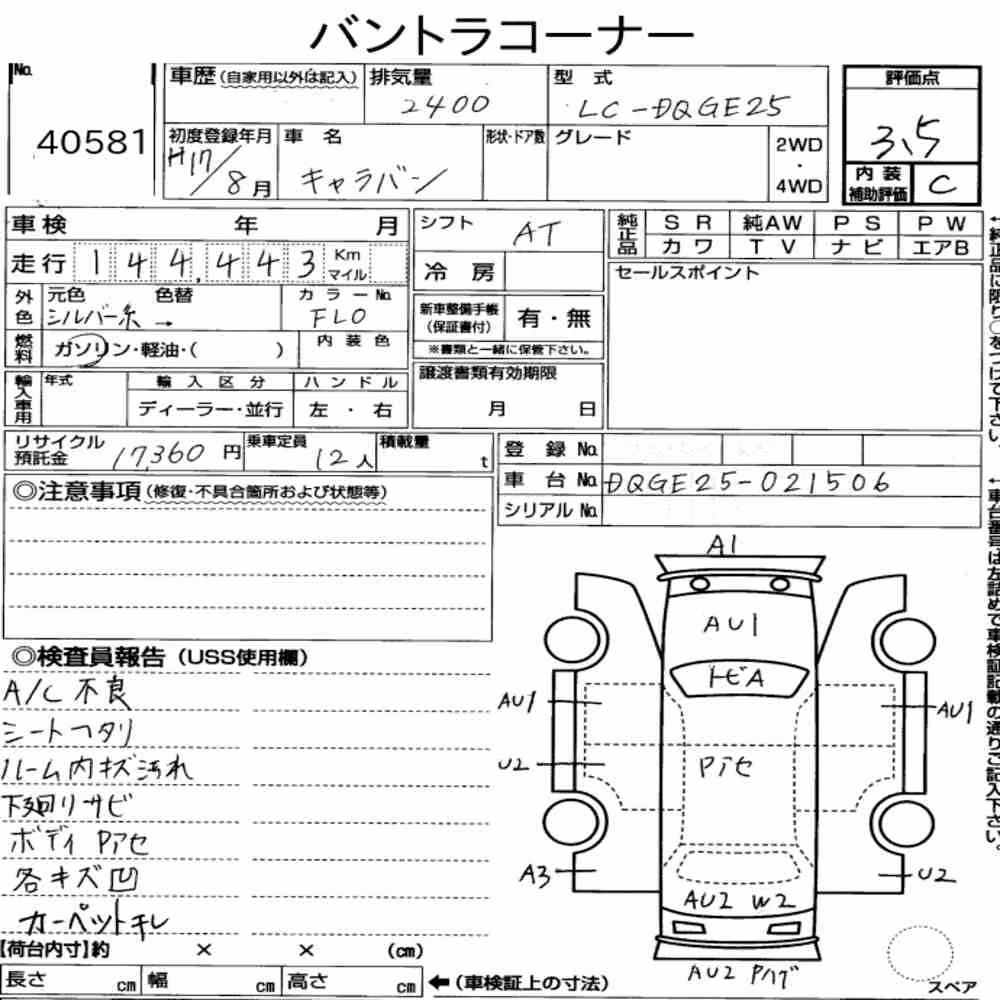 バントラコーナー
No. 40581
車歴(自家用以外は記入) 排気量 2400 型式 LC-DQGE25
評価点 3.5
初度登録年月 H17/8月 車名 キャラバン 形状・ドア数 グレード 2WD・4WD
内装補助評価 C
車検 年 月
シフト AT
純正品 SR 純AW PS PW
カワ TV ナビ エアB
走行 144,443 Km マイル
冷房
セールスポイント
外色 元色 シルバー系 → 色替 カラーNo. FL0
新車整備手帳(保証書付) 有・無
※書類と一緒に保管下さい。
燃料 ガソリン・軽油・( ) 内装色
譲渡書類有効期限 月 日
輸入車用 年式 輸入区分 ハンドル
ディーラー・並行 左・右
リサイクル預託金 17,360円 乗車定員 12人 積載量 t
登録No.
車台No. DQGE25-021506
シリアルNo.
←純正品に限り○をつけて下さい。
←車台番号は左詰めで車検証記載の通りご記入下さい。
◎注意事項(修復・不具合箇所および状態等)
◎検査員報告(USS使用欄)
A/C不良
シートヘタリ
ルーム内キズ汚れ
下廻りサビ
ボディPアセ
各キズ凹
カーペットキレ
A1
AU1
トビA
AU1
AU1
U2
Pアセ
A3
U2
AU2 W2
AU2 Pハゲ
スペア
【荷台内寸】約 × × (cm)
長さ cm 幅 cm 高さ cm ←(車検証上の寸法)